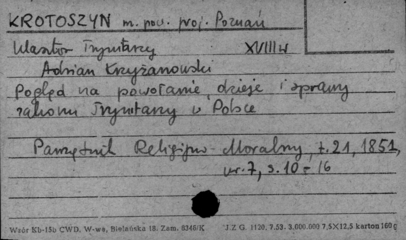 KROTOSZYN m. pow. proj. Poznań
Klasztor Trynitarzy XVIII w
Adrian Krzyżanowski
Pogląd na powołanie, dzieje i sprawy
zakonu Trynitarzy w Polsce
Pamiętnik Religijno-Moralny, t.21, 1851,
nr.7, s.10-16
Wzór Kb-15b CWD, W-wa, Bielańska 18. Zam. 6346/K J.Z.G. 1120, 7.53. 3.000.000 7,5X12,5 karton 160 g